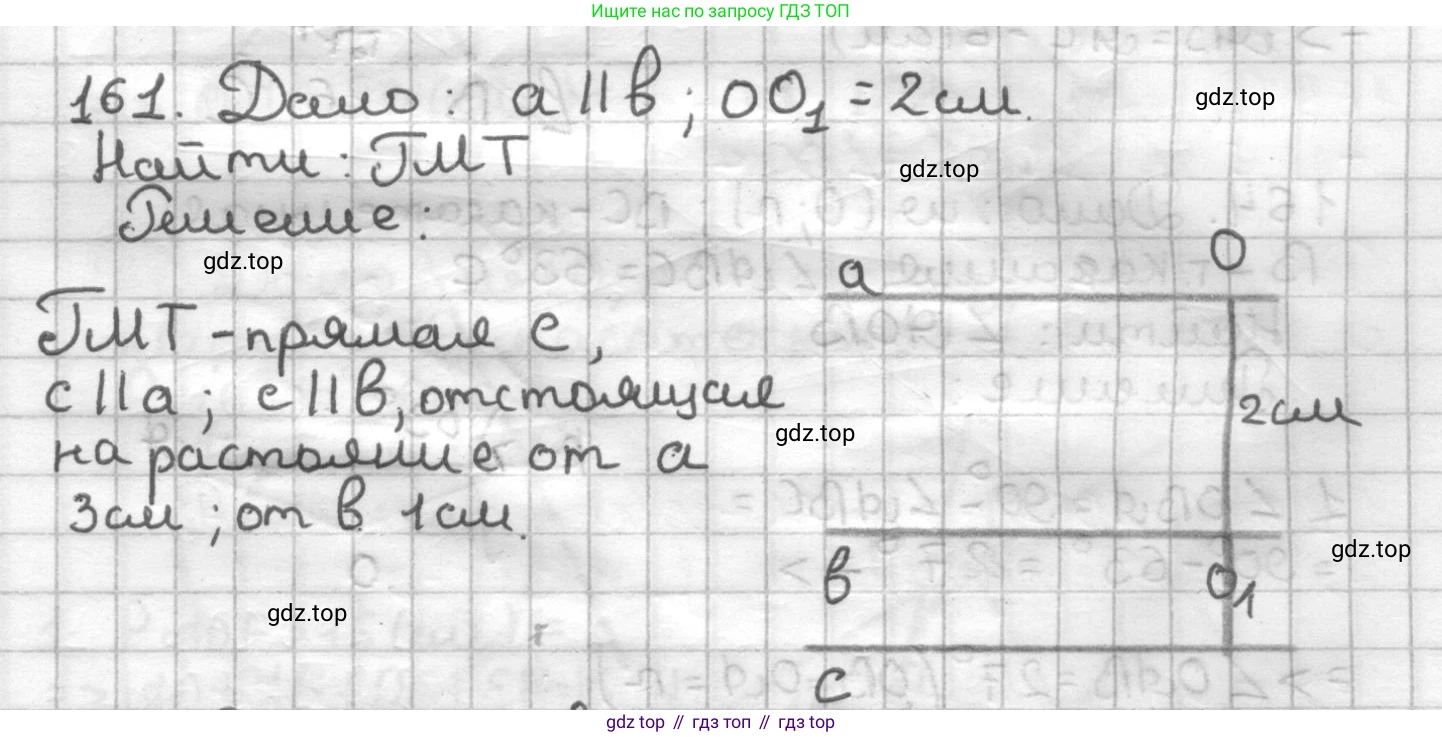 Ищите нас по запросу ГДЗ ТОП
161. Дано: a || в; OO₁ = 2 см.
gdz.top
Найти: ГМТ
gdz.top
Решение:
gdz.top
ГМТ - прямая c,
c || a; c || в, отстоящая
на растояние от a
3 см; от в 1 см.
a
O
2 см
gdz.top
в
O₁
gdz.top
c
gdz.top
gdz top // гдз топ // gdz top